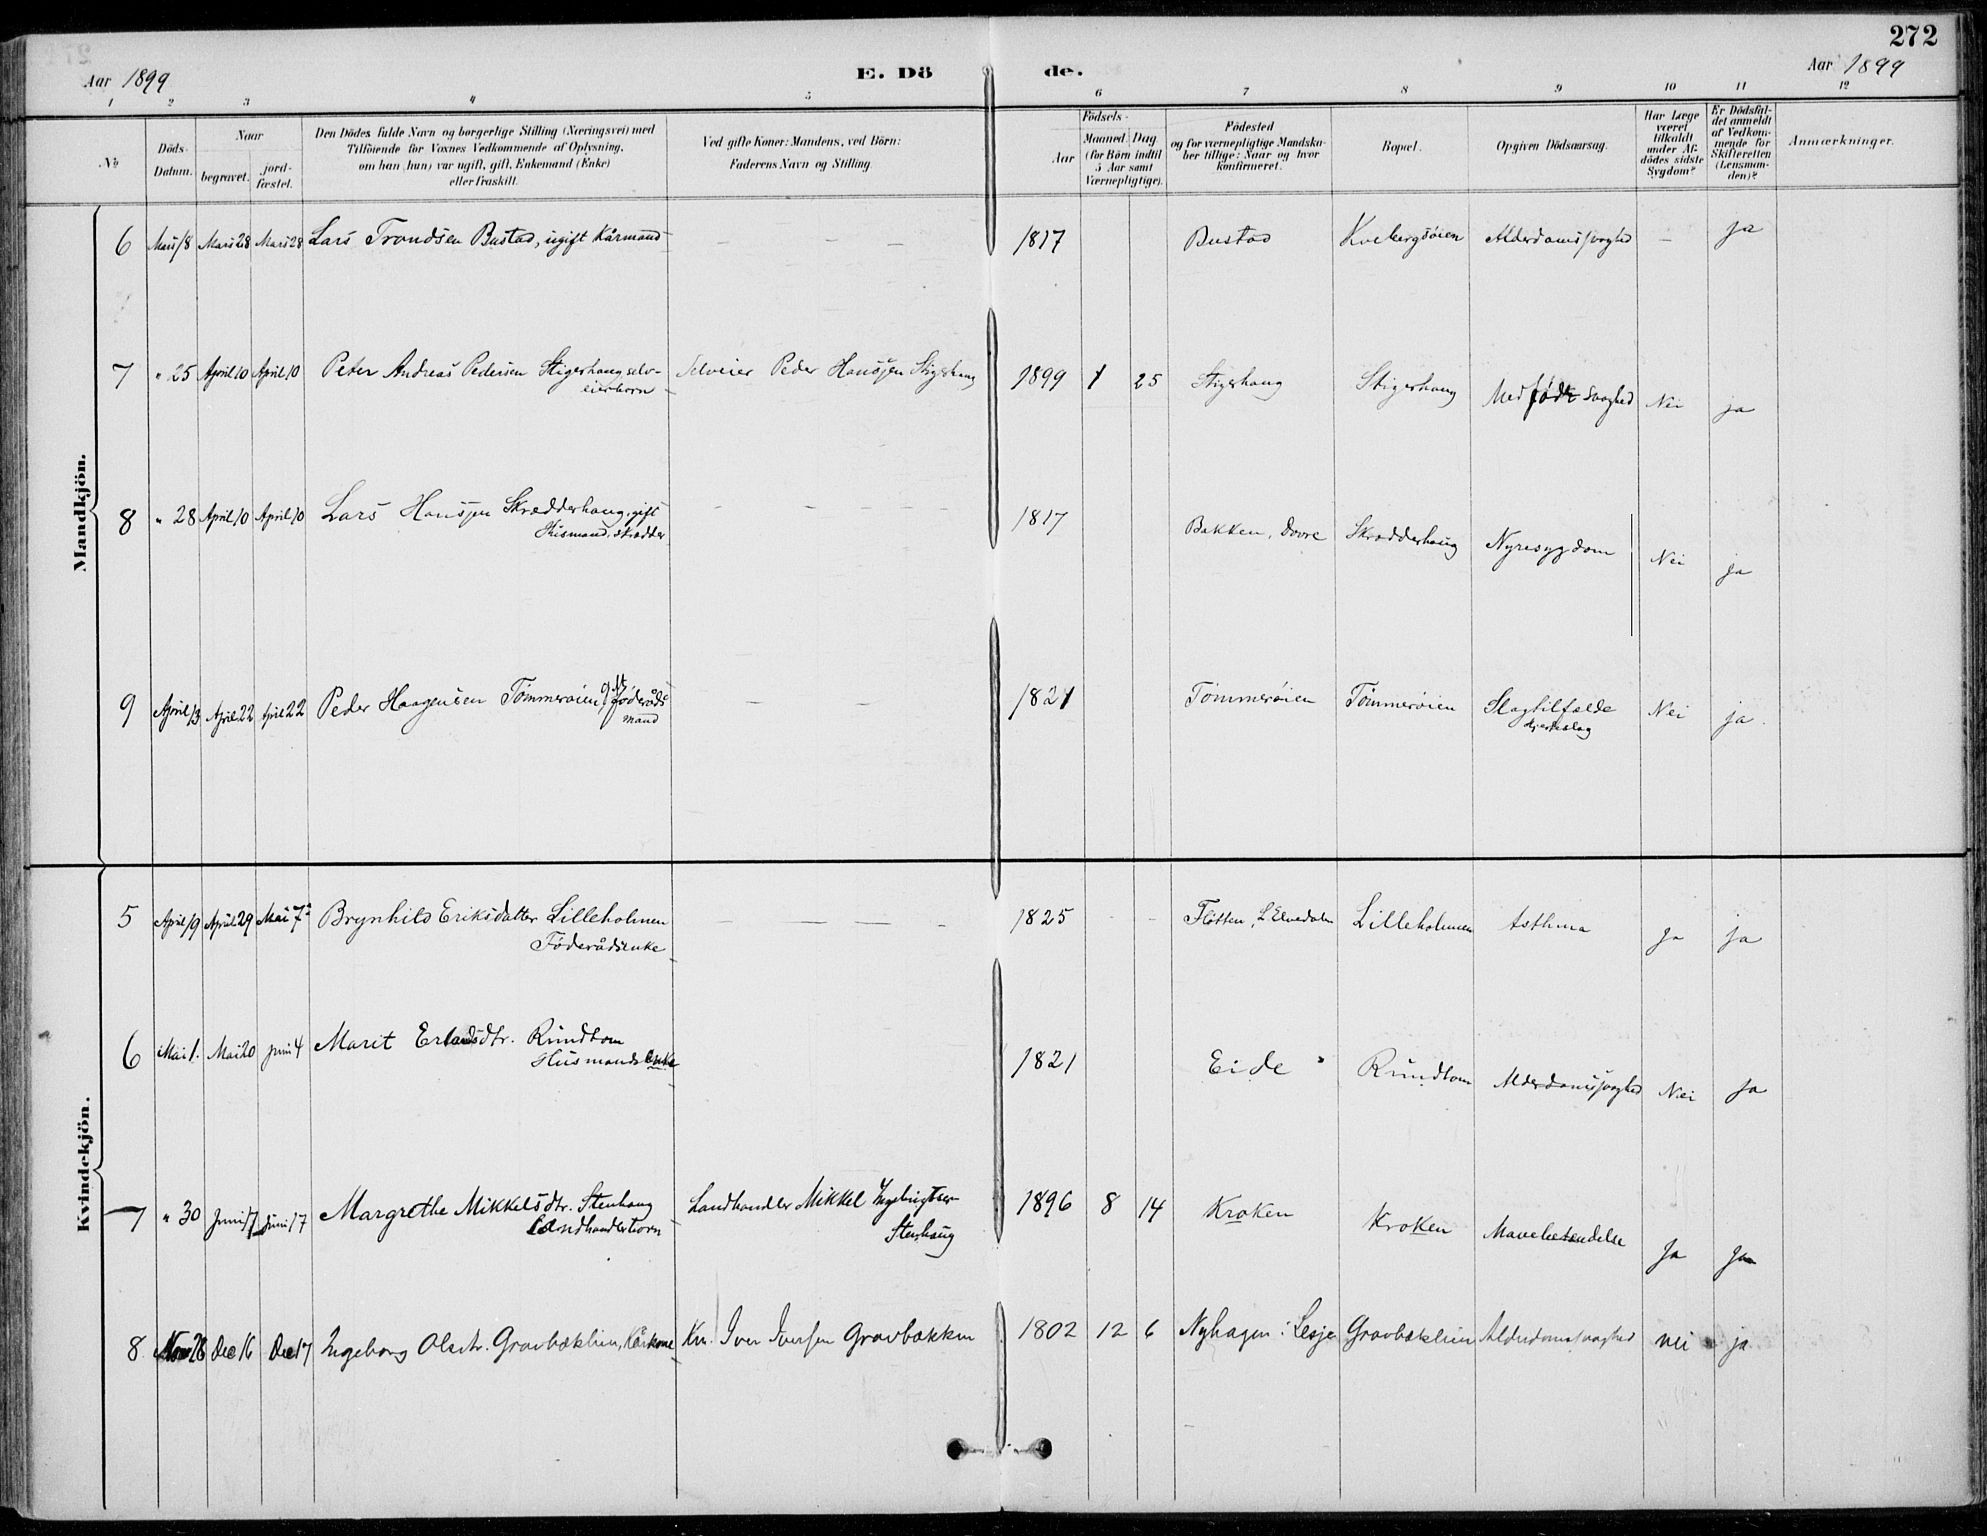 272
Aar 1899
E. Dö
de.
Aar 1899
1 2 3 4 5 6 7 8 9 10 11 12
No
Döds-
Datum.
Naar
begravet.
jord-
fæstet.
Den Dödes fulde Navn og borgerlige Stilling (Næringsvei) med
Tilföiende for Voxnes Vedkommende af Oplysning,
om han (hun) var ugift, gift, Enkemand (Enke)
eller fraskilt.
Ved gifte Koner: Mandens, ved Börn:
Faderens Navn og Stilling.
Födsels-
Aar
Maaned
Dag
(for Börn indtil
5 Aar samt
Værnepligtige).
Födested
og for værnepligtige Mandska-
ber tillige: Naar og hvor
konfirmeret.
Bopæl.
Opgiven Dödsaarsag.
Har Læge
været
tilkaldt
under Af-
dödes sidste
Sygdom?
Er Dödsfal-
det anmeldt
af Vedkom-
mende for
Skifteretten
(Lensman-
den)?
Anmærkninger.
Mandkjön.
6 Mars 18 Mars 28 Mars 28 Lars Trondsen Bustad, ugift Kårmand — — — 1817 Bustad Kvebergsøien Alderdomssvaghed — ja
7 " 25 April 10 April 10 Peter Andreas Pedersen Stigerhaug selv-
eierbarn
Selveier Peder Hanssen Stigerhaug 1899 1 25 Stigerhaug Stigerhaug Medfødt Svaghed Nei ja
8 " 28 April 10 April 10 Lars Hanssen Skrædderhaug, gift
Husmand, skrædder
— — — — 1817 Bakken, Dovre Skrædderhaug Nyresygdom Nei ja
9 April 13 April 22 April 22 Peder Haagensen Tømmerøien, gift føderåds
mand
— — 1821 Tømmerøien Tømmerøien Slagtilfælde
Hjerteslag
Nei ja.
Kvindekjön.
5 April 19 April 29 Mai 7 Brynhild Eriksdatter Lilleholmen
Føderådsenke
— — — - 1825 - - Fløtten, L Elvedalen Lilleholmen Asthma ja ja
6 Mai 1. Mai 20 Juni 4 Marit Erlandsdtr. Rundtom
Husmandsenke
1821 Eide Rundtom Alderdomssvaghed Nei Ja
7 " 30 Juni 17 Juni 17 Margrethe Mikkelsdtr. Stenhaug
Landhandlerbarn
Landhandler Mikkel Ingebrigtsen
Stenhaug
1896 8 14 Kroken Kroken Mavebetændelse Ja Ja
8. Nov 28 Dec 16 Dec 17 Ingeborg Olsdtr. Gravbæklien, Kårkone Km. Iver Iversen Gravbækken 1802 12 6 Nyhagen i Lesje Gravbæklien Alderdomssvaghed nei ja.